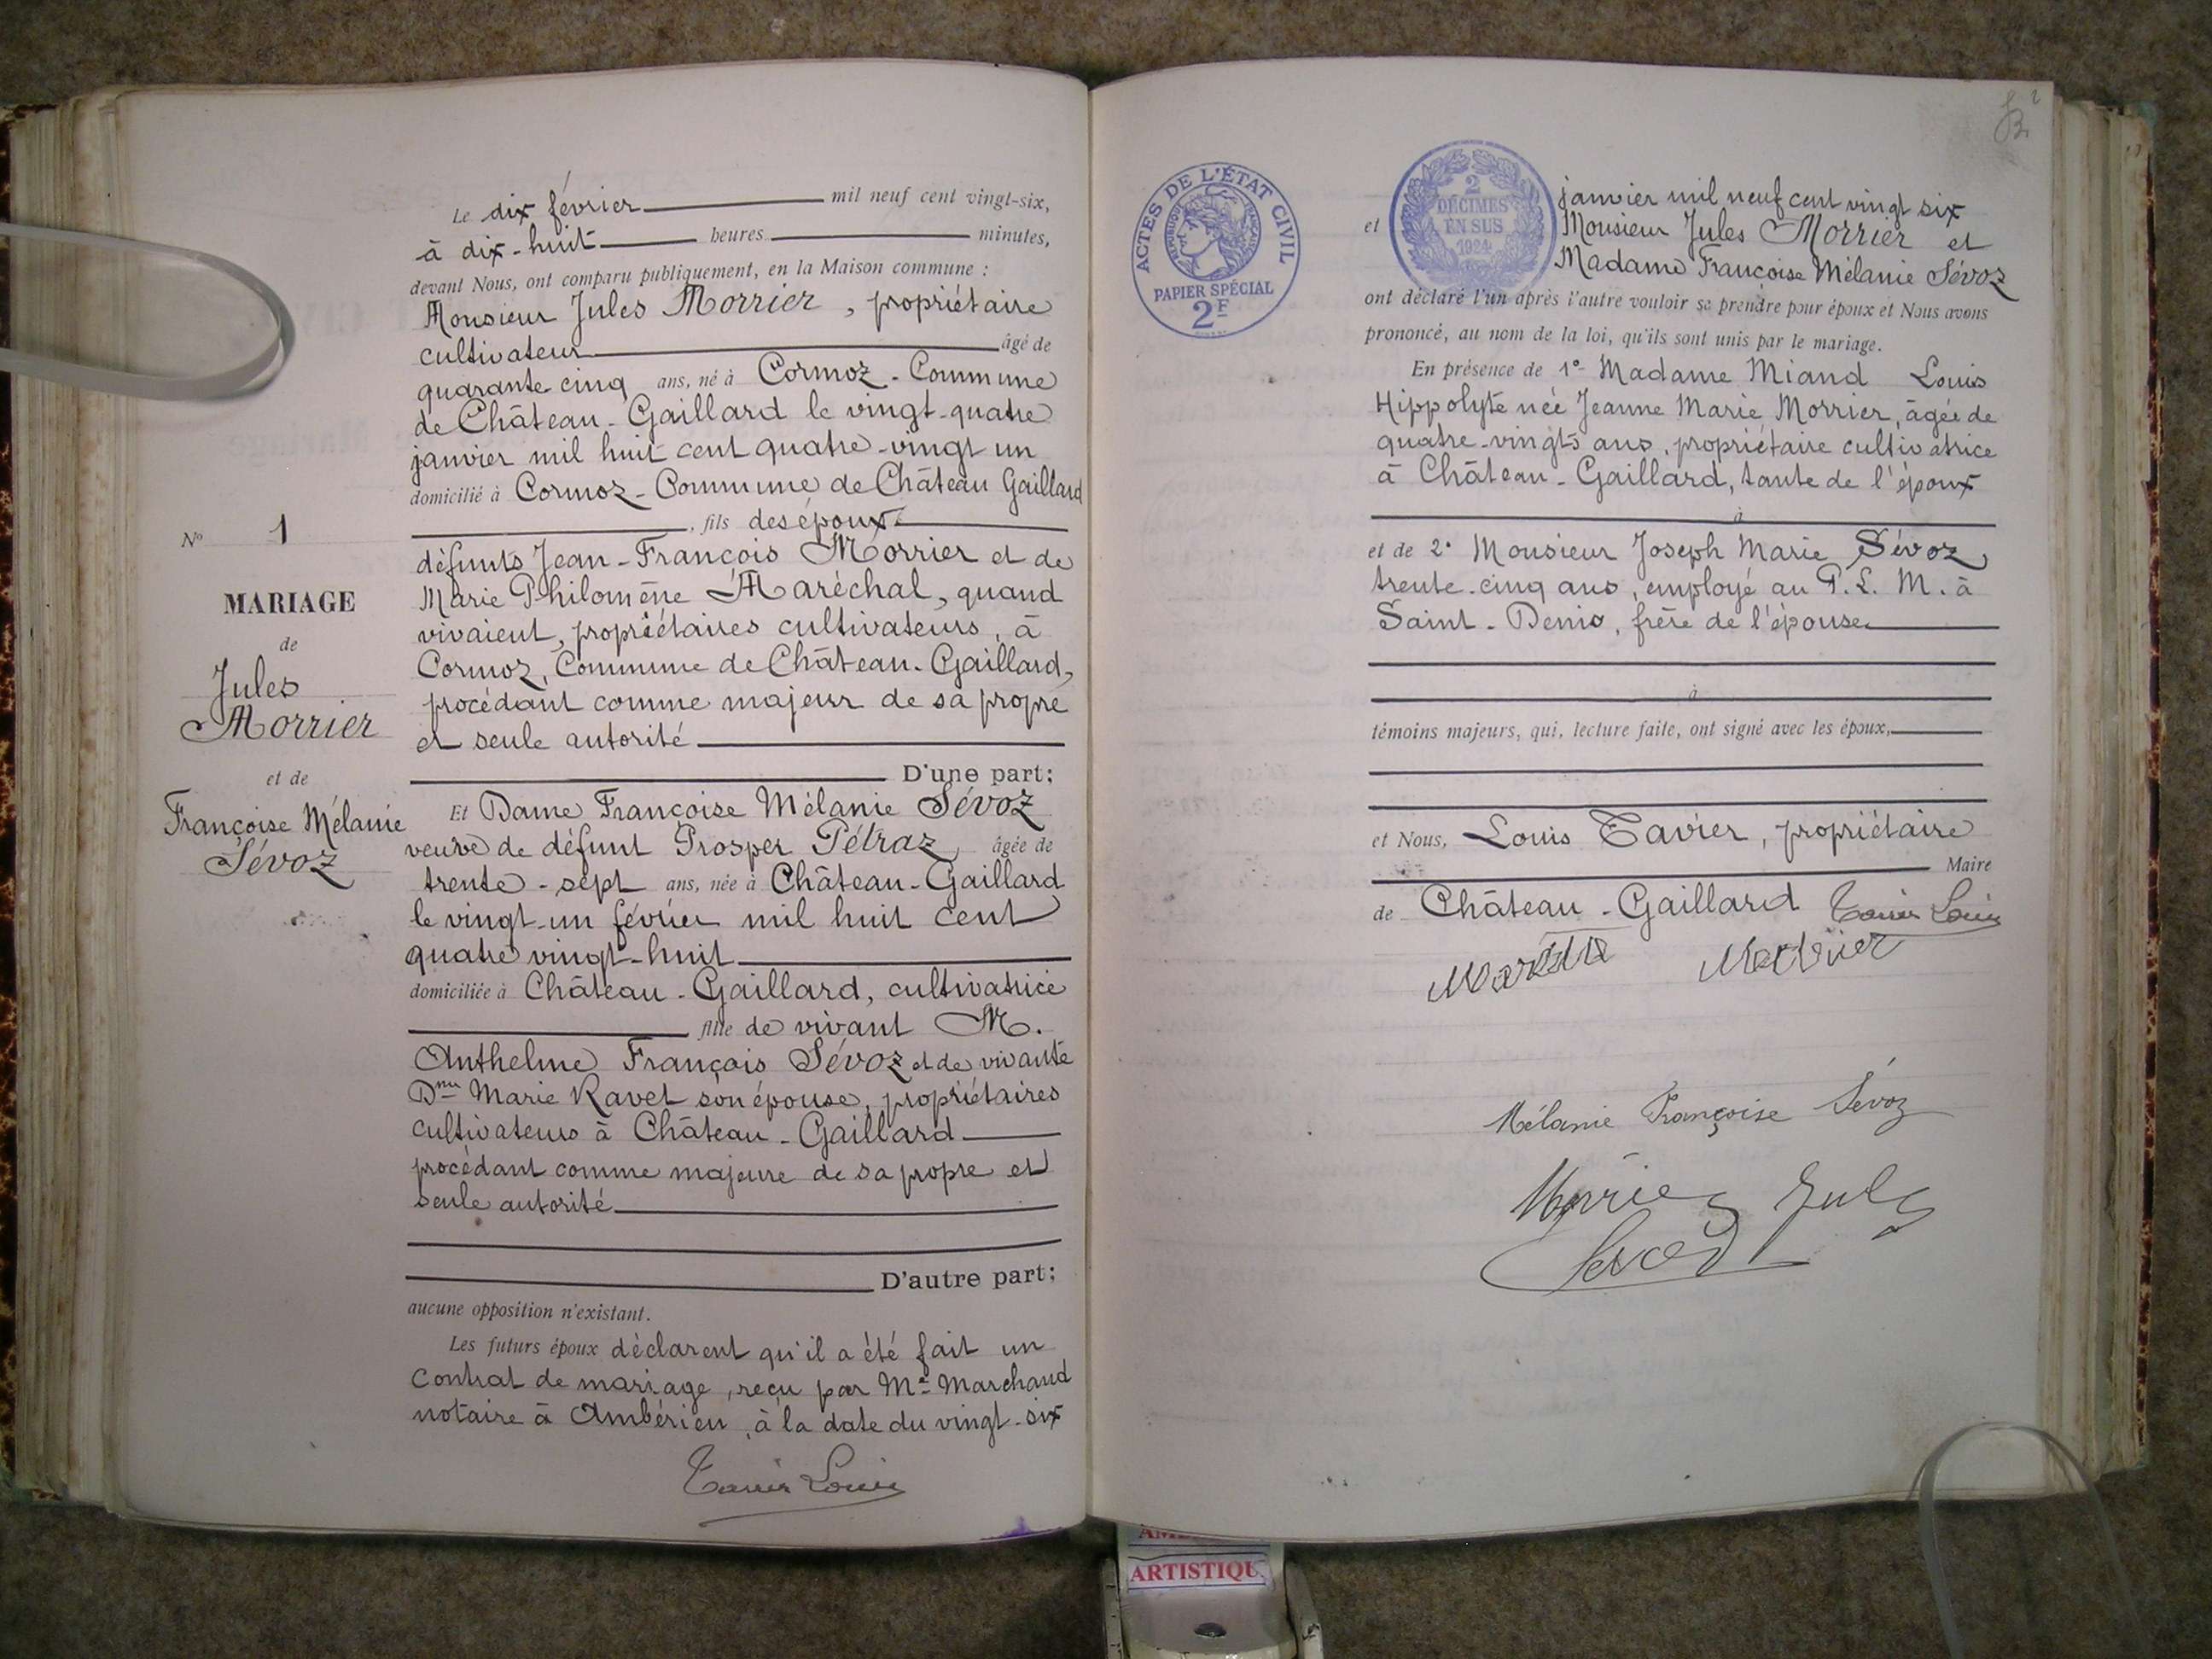 Le dix février mil neuf cent vingt-six,
à dix-huit heures minutes,
devant Nous, ont comparu publiquement, en la Maison commune :
Monsieur Jules Morrier, propriétaire
cultivateur âgé de
quarante-cinq ans, né à Cormoz - Commune
de Château-Gaillard le vingt-quatre
janvier mil huit cent quatre-vingt un
domicilié à Cormoz - Commune de Château Gaillard
, fils des époux
défunts Jean-François Morrier et de
Marie Philomène Maréchal, quand
vivaient, propriétaires cultivateurs, à
Cormoz, Commune de Château-Gaillard,
procédant comme majeur de sa propre
et seule autorité
D'une part;
Et Dame Françoise Mélanie Sévoz
veuve de défunt Prosper Pétraz, âgée de
trente-sept ans, née à Château-Gaillard
le vingt-un février mil huit cent
quatre vingt-huit
domiciliée à Château-Gaillard, cultivatrice
fille de vivant M.
Anthelme François Sévoz et de vivante
Dme Marie Ravet son épouse, propriétaires
cultivateurs à Château-Gaillard
procédant comme majeure de sa propre et
seule autorité
D'autre part;
aucune opposition n'existant.
Les futurs époux déclarent qu'il a été fait un
contrat de mariage, reçu par Me Marchand
notaire à Ambérieu, à la date du vingt-six
Tavier Louis
No 1
MARIAGE
de
Jules
Morrier
et de
Françoise Mélanie
Sévoz
2
ACTES DE L'ÉTAT CIVIL
RÉPUBLIQUE FRANÇAISE
PAPIER SPÉCIAL
2F
2
DÉCIMES
EN SUS
1924
janvier mil neuf cent vingt six
et Monsieur Jules Morrier et
Madame Françoise Mélanie Sévoz
ont déclaré l'un après l'autre vouloir se prendre pour époux et Nous avons
prononcé, au nom de la loi, qu'ils sont unis par le mariage.
En présence de 1° Madame Miand Louis
Hippolyte née Jeanne Marie Morrier, âgée de
quatre-vingts ans, propriétaire cultivatrice
à Château-Gaillard, tante de l'époux
à
et de 2° Monsieur Joseph Marie Sévoz
trente-cinq ans, employé au P. L. M. à
Saint-Denis, frère de l'épouse
à
témoins majeurs, qui, lecture faite, ont signé avec les époux,
et Nous, Louis Tavier, propriétaire
Maire
de Château-Gaillard Tavier Louis
Mélanie Françoise Sévoz
Morrier Jules
Sevoz
ARTISTIQU